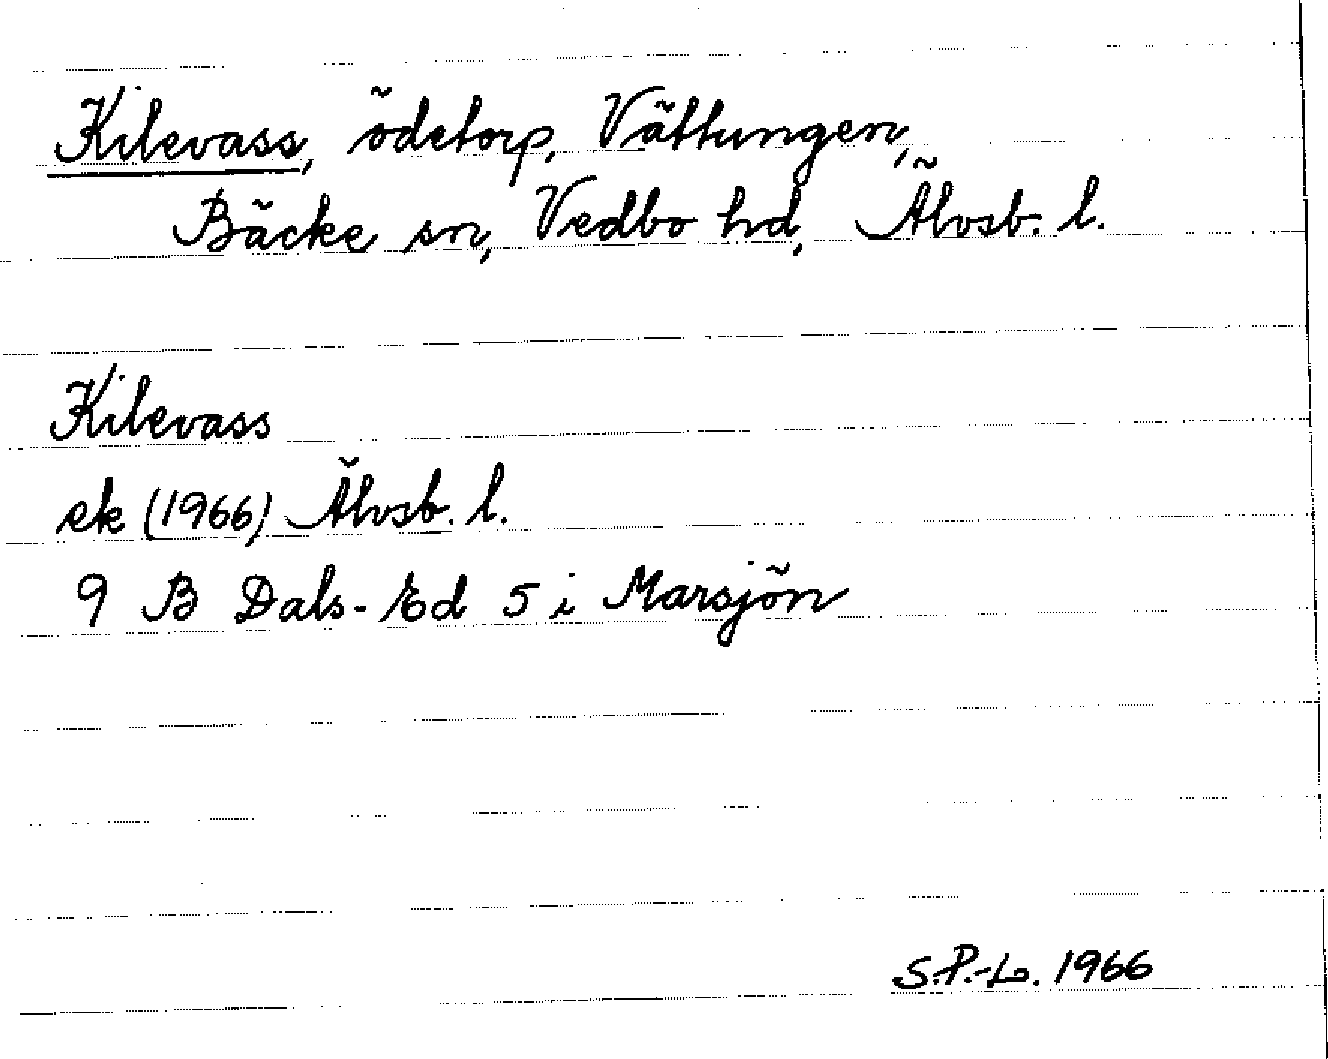 Kilevass, ödetorp, Vättungen,
Bäcke sn, Vedbo hd, Älvsb. l.
Kilevass
ek (1966) Älvsb. l.
9 B Dals-Ed 5 i Marsjön
S.P.-L. 1966